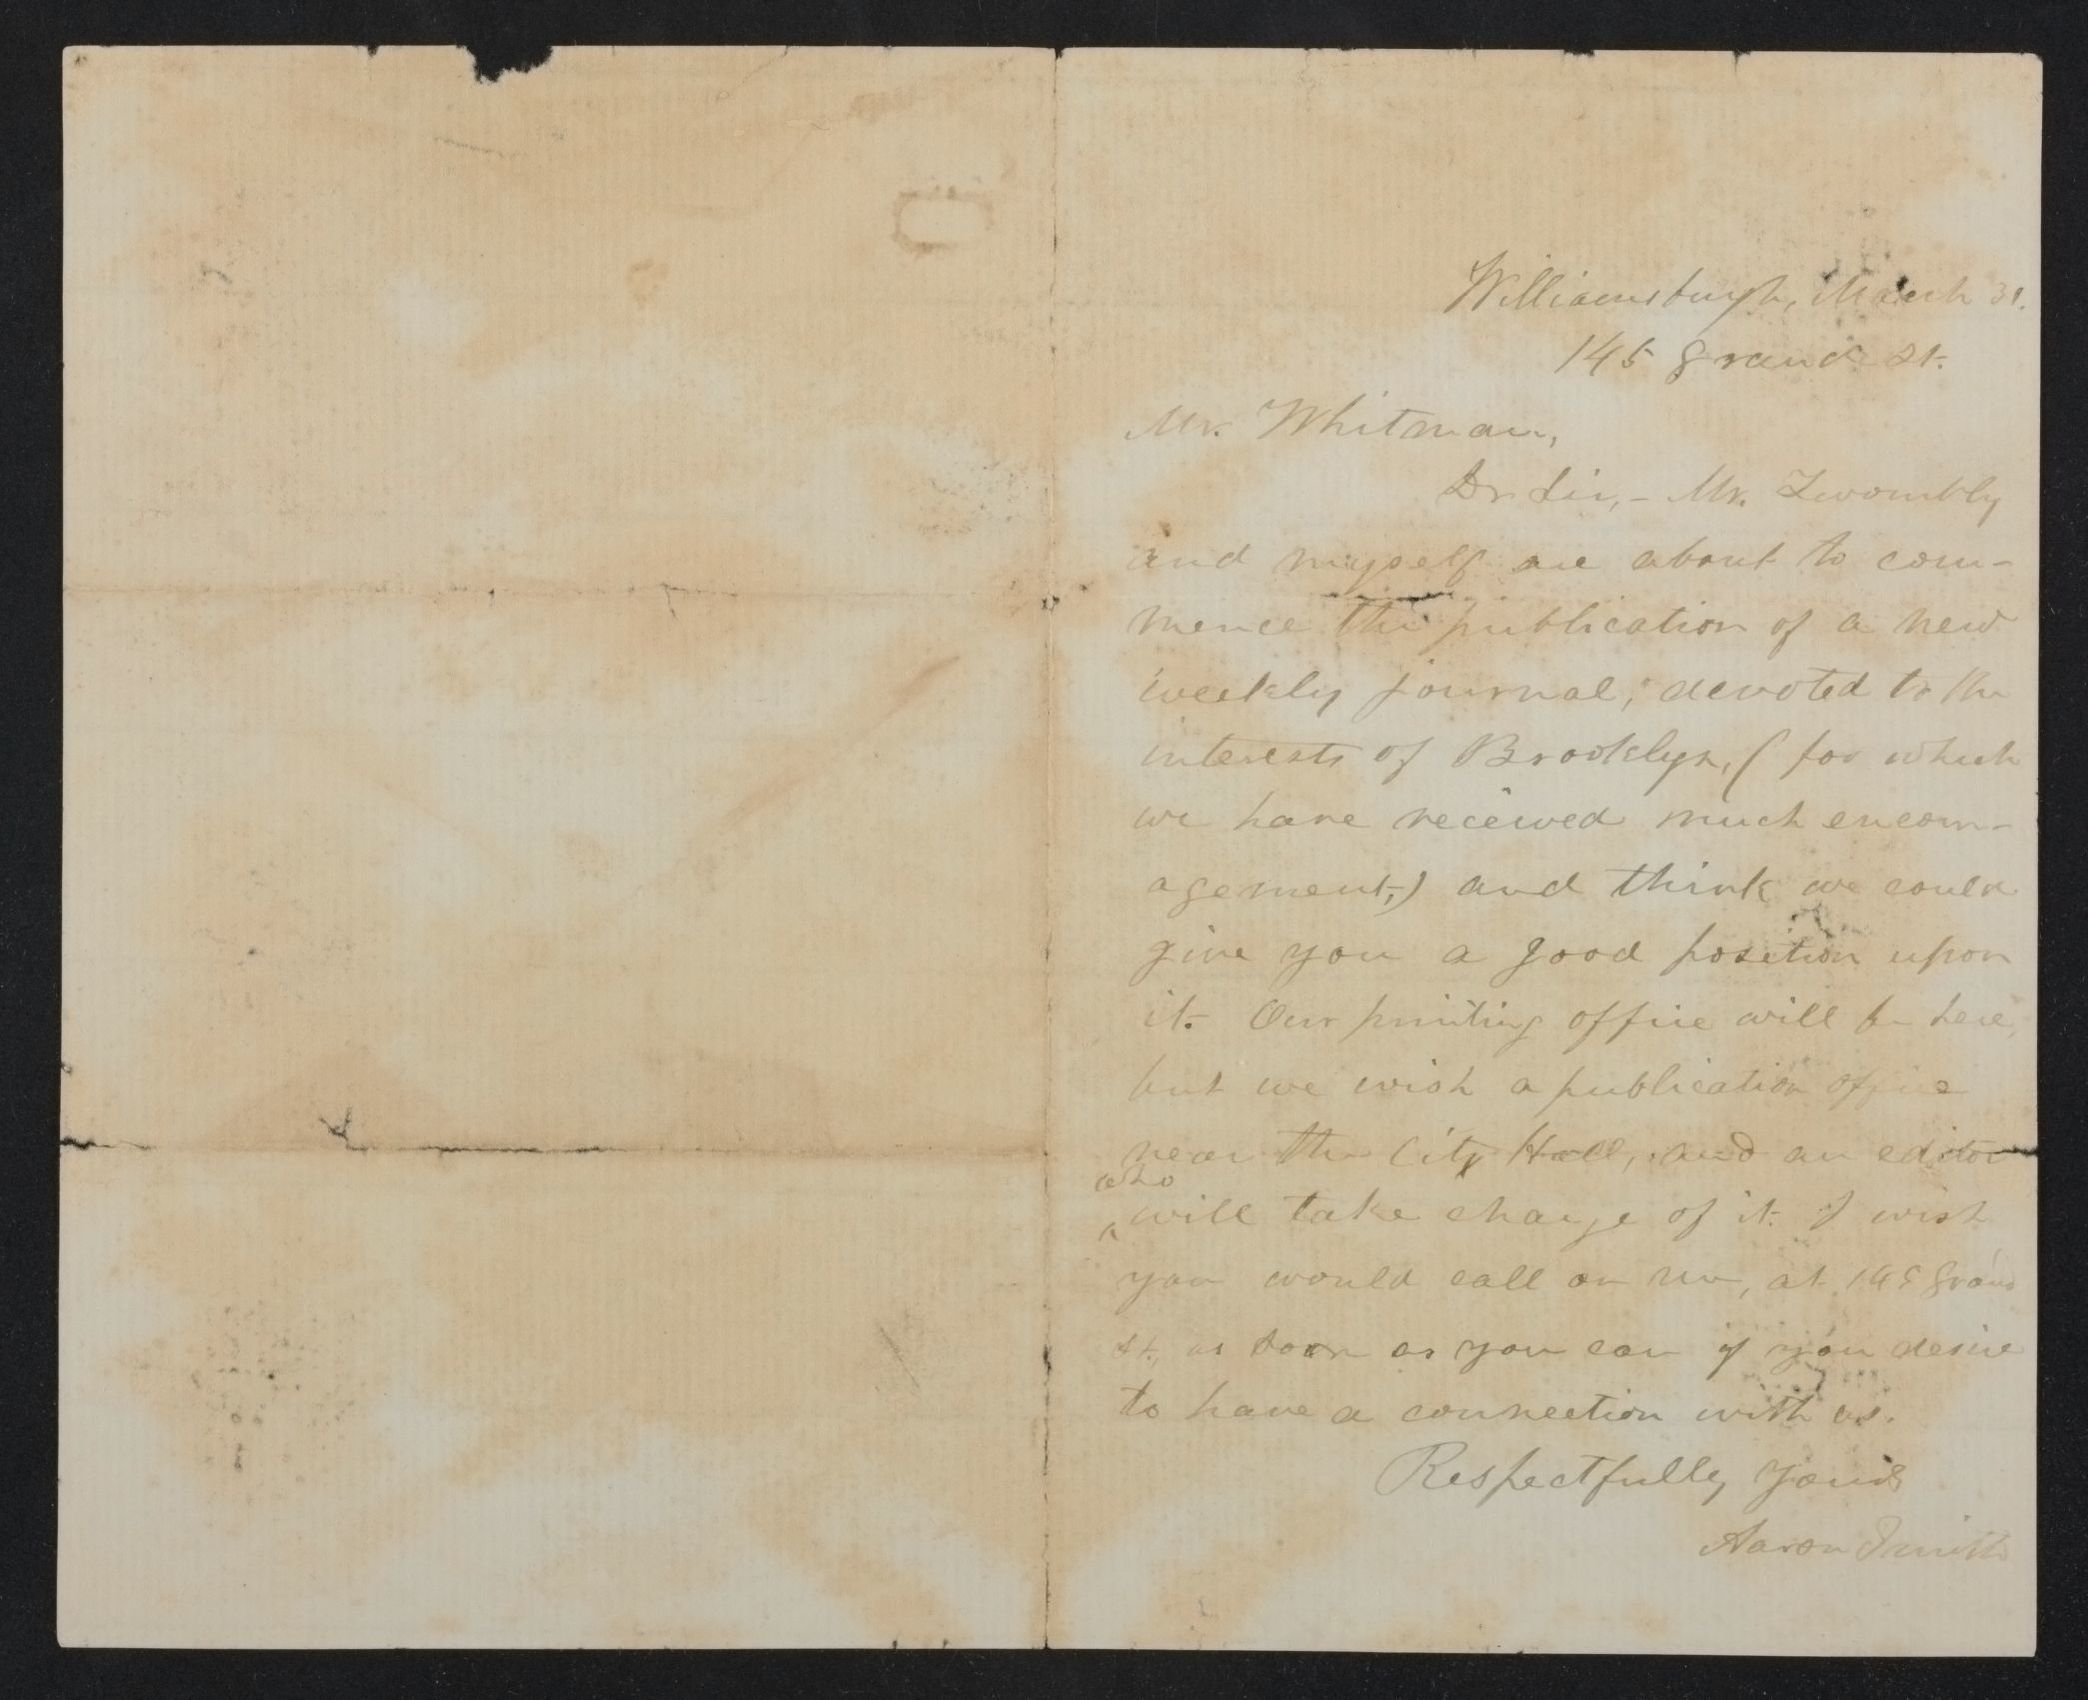 Williamsburgh, March 31.
145 Grand St.
Mr. Whitman,
Dr Sir,- Mr. Twombly
and myself are about to com-
mence the publication of a new
weekly journal, devoted to the
interests of Brooklyn, (for which
we have received much encour-
agement,) and think we could
give you a good position upon
it. Our printing office will be here,
but we wish a publication office
near the City Hall, and an editor
who
will take charge of it. I wish
you would call on me, at 145 Grand
St., as soon as you can if you desire
to have a connection with us.
Respectfully Yours
Aaron Smith